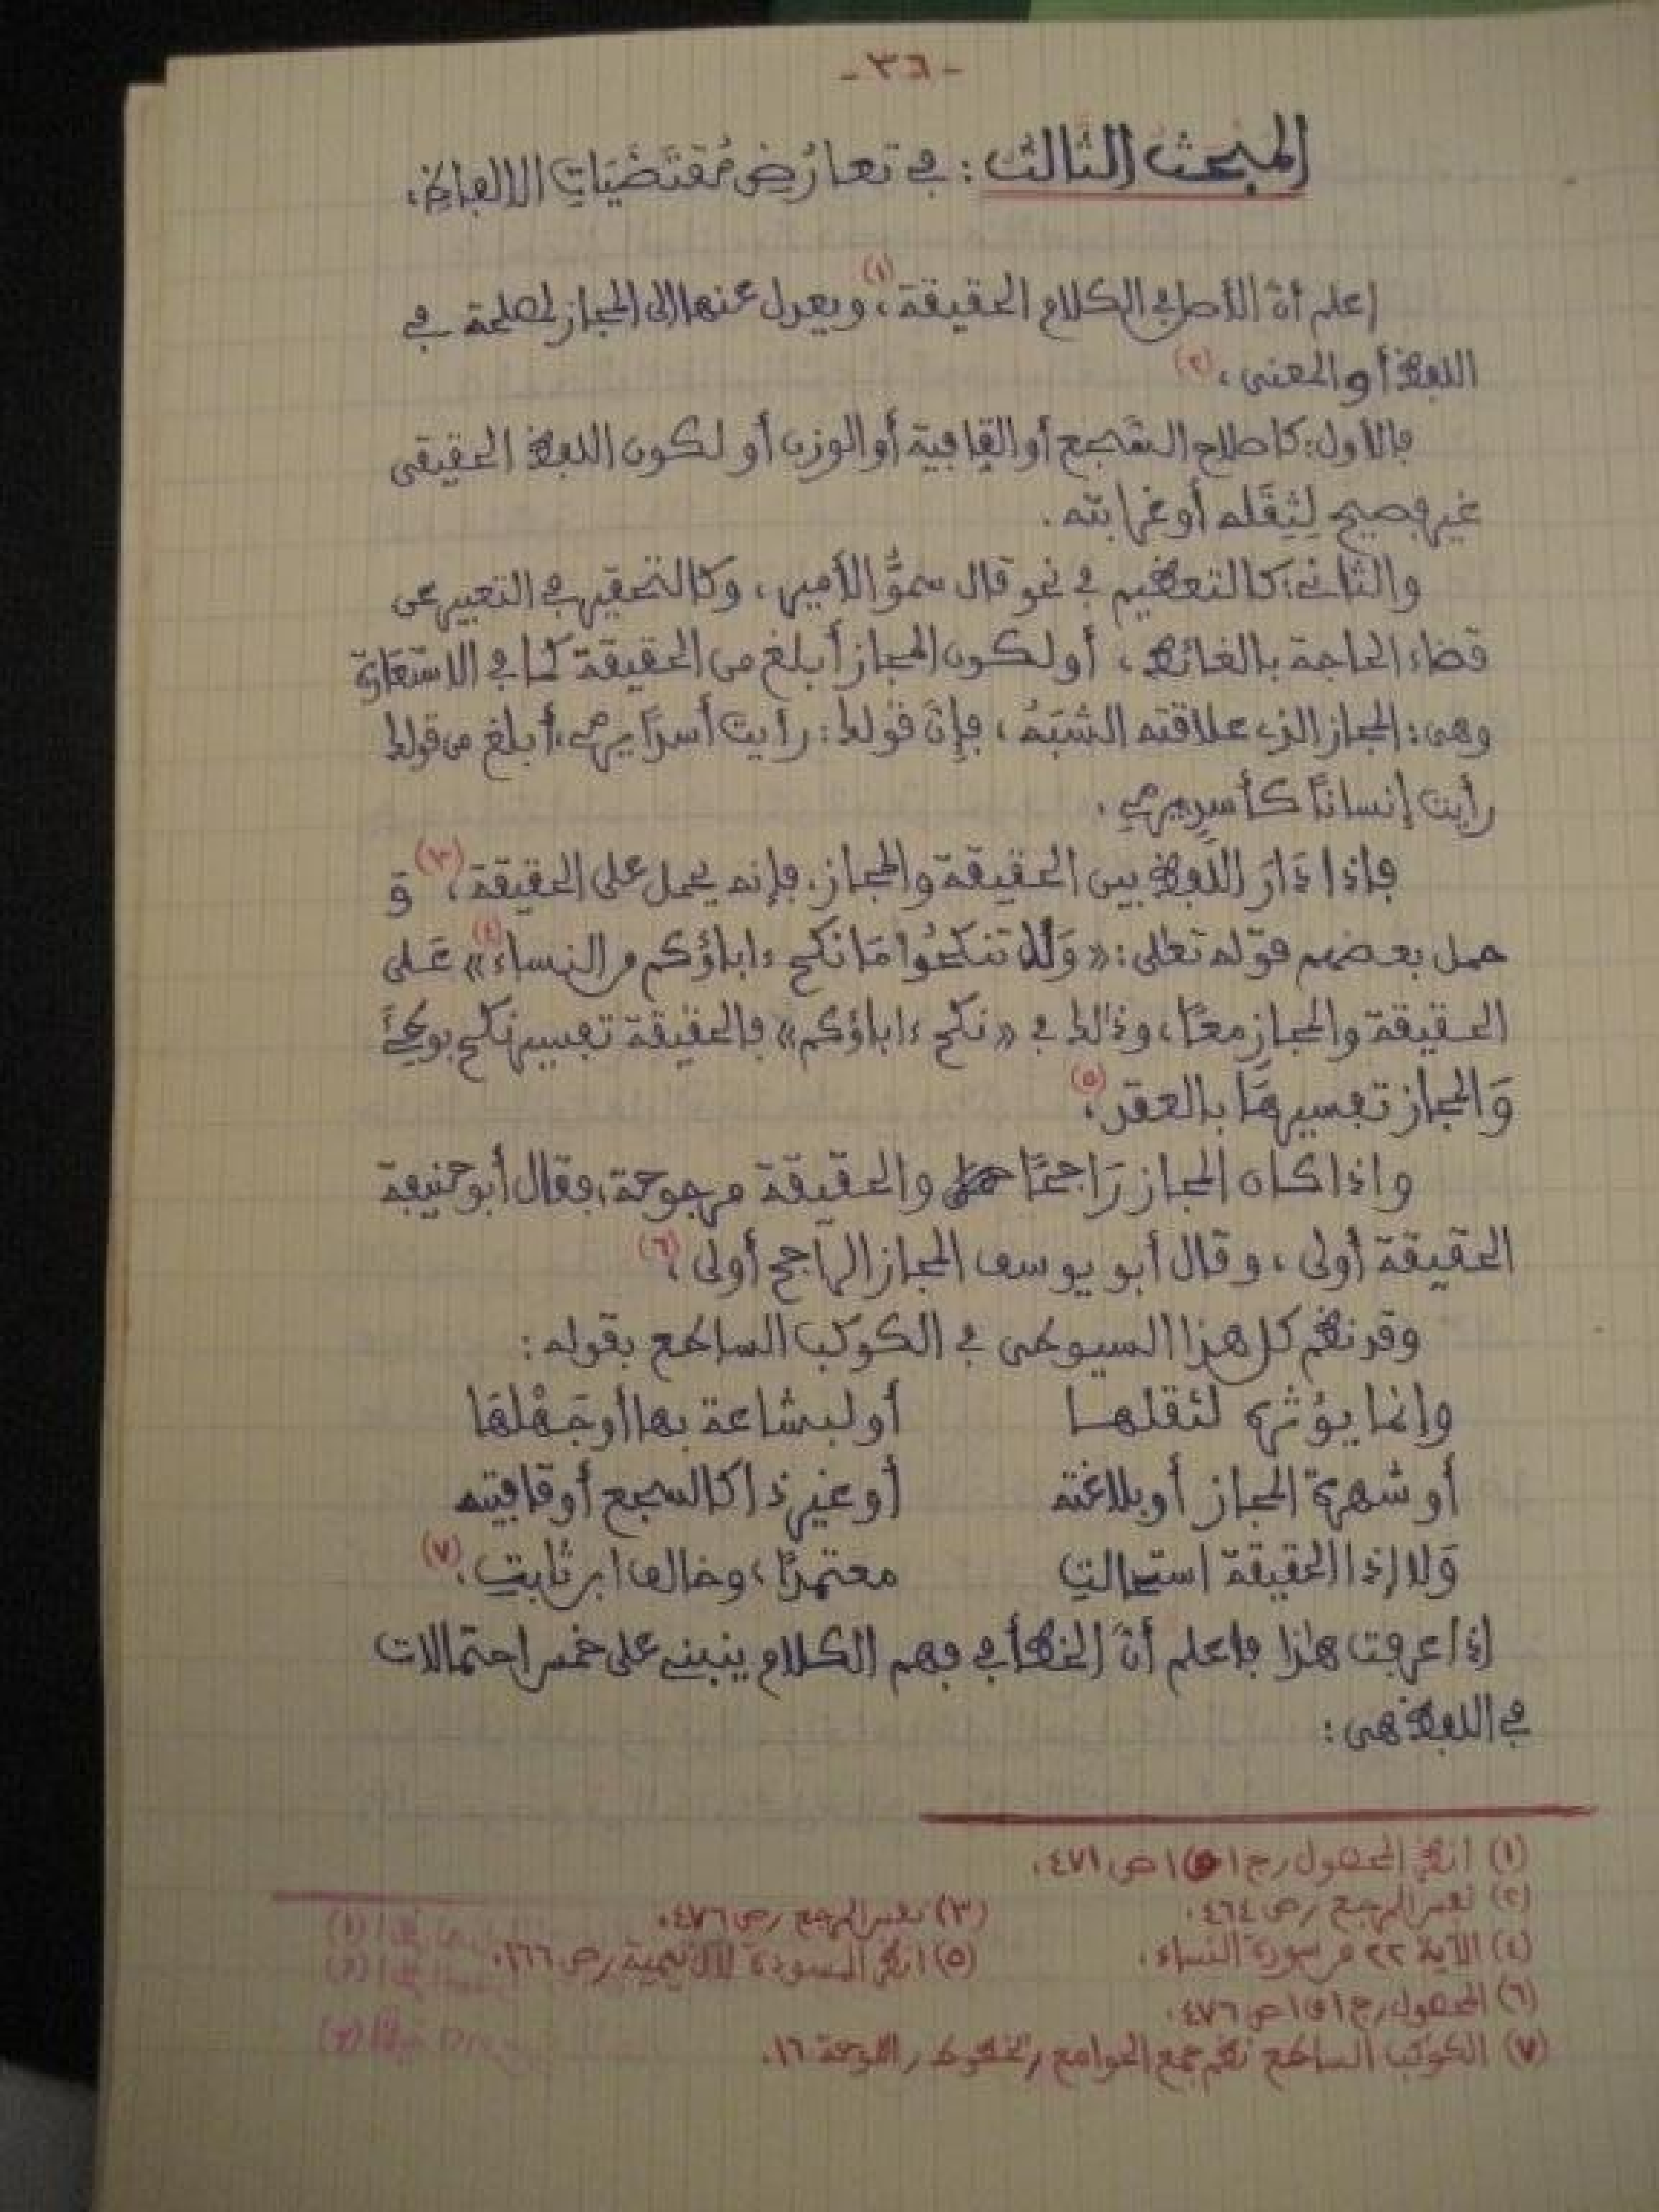 - ٣٦ -
المبحث الثالث: في تعارُضِ مُقتَضَيَاتِ الالفاظ.
إعلم أنّ الأصل في الكلام الحقيقة،(١) ويعدل عنها إلى المجاز لمصلحة في
اللفظ أو المعنى.(٢)
فالأول: كاصلاح السَّجع أو القافية أو الوزن أو لكون اللفظ الحقيقي
غير فصيح لِثِقَله أو غرابته.
والثاني: كالتعظيم في نحو قال سموُّ الأمير، وكالتحقير في التعبير عن
قضاء الحاجة بالغائط، أو لكون المجاز أبلغ من الحقيقة كما في الاستعَارة
وهي: المجاز الذي علاقته الشبَهُ، فإنّ قولك: رأيت أسدًا يرمي، أبلغ من قولك
رأيت إنسانًا كأسدٍ يرمي.
فإذا دَارَ اللّفظ بين الحقيقة والمجاز. فإنه يحمل على الحقيقة،(٣) وَ
حمل بعضهم قوله تعالى: «وَلَا تنكحُوا مَا نكح ءاباؤكم من النساء»(٤) عَلى
الحقيقة والمجاز معًا، وذلك في «نكح ءاباؤكم» فالحقيقة تفسير نكح بوطِئَ
وَالمجاز تفسيرهَا بالعقد.(٥)
وإذا كان المجاز رَاجحًا والحقيقة مرجوحة، فقال أبو حنيفة
الحقيقة أولى، وقال أبو يوسف المجاز الرّاجح أولى.(٦)
وقد نظم كل هذا السيوطي في الكوكب الساطع بقوله:
وإنما يؤثر لثقلهـا أو لبشاعة بها أو جَهْلهَا
أو شهرة المجاز أو بلاغته أو غير ذا كالسجع أو قافيته
وَلا إذا الحقيقة استحالتِ معتمدًا، وخالف ابن ثابتِ.(٧)
إذا عرفت هاذا فاعلم أنّ الخطأ في فهم الكلام ينبني على خمس احتمالات
في اللفظ هي:
(١) انظر المحصول / ج ١ ق ١ ص ٤٧١.
(٢) نفس المرجع / ص ٤٦٤.
(٣) نفس المرجع / ص ٤٧٦.
(٤) الآية ٢٢ من سورة النساء.
(٥) انظر المسودة لآل تيمية / ص ١٦٦.
(٦) المحصول / ج ١ ق ١ ص ٤٧٦.
(٧) الكوكب الساطع نظم جمع الجوامع / مخطوط / اللوحة ١٦.